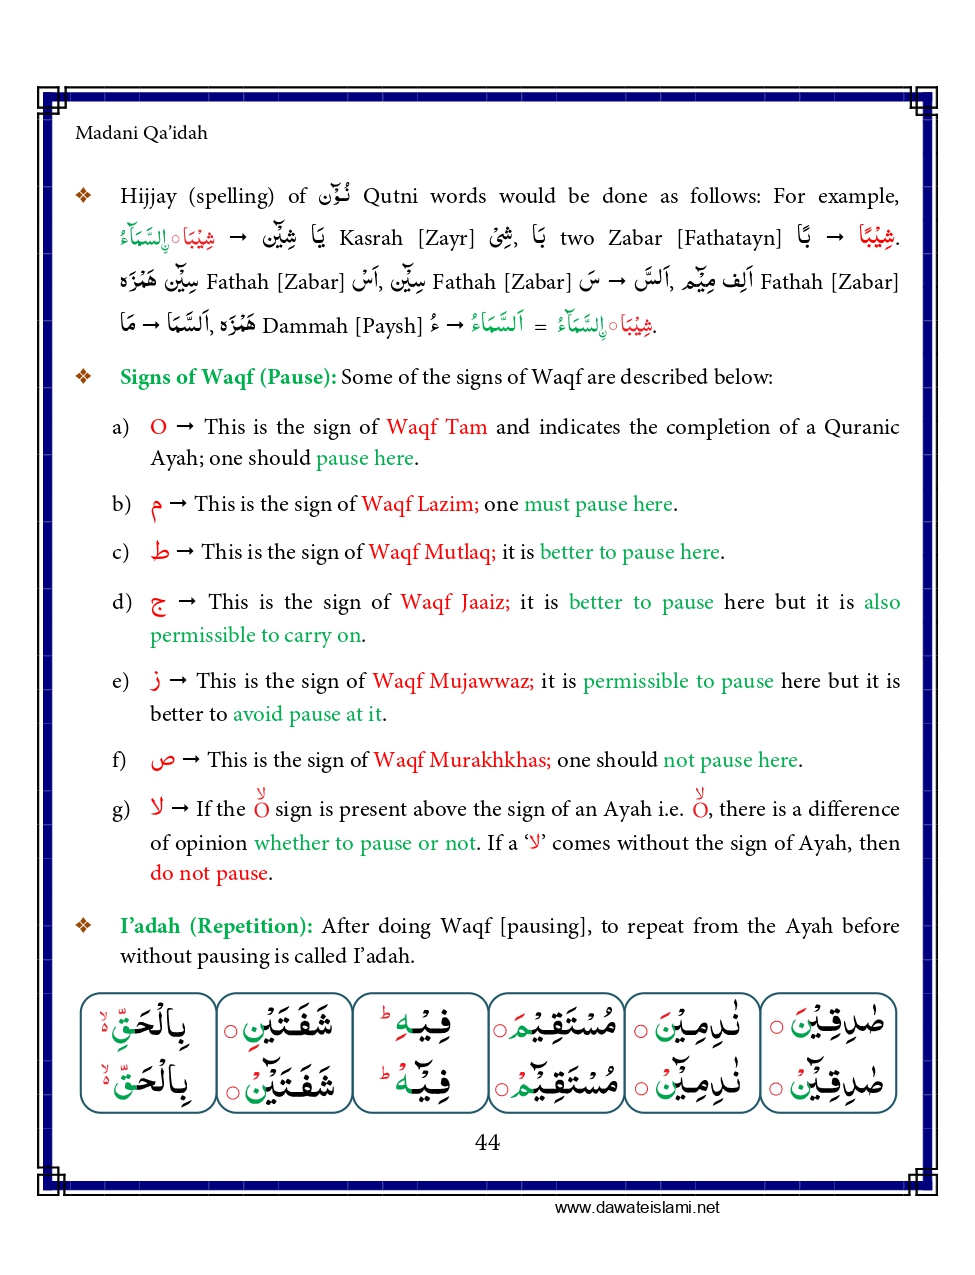 Madani Qa’idah
❖ Hijjay (spelling) of نُوْٓن Qutni words would be done as follows: For example,
شِيْبَا○ۨالسَّمَآءُ → شِيْٓن يَا Kasrah [Zayr] شِىْ, بَا two Zabar [Fathatayn] بًا → شِيْبًا.
هَمْزَه سِيْٓن Fathah [Zabar] اَسْ, سِيْٓن Fathah [Zabar] سَ → اَلسَّ, اَلِف مِيْٓم Fathah [Zabar]
مَا → اَلسَّمَا, هَمْزَه Dammah [Paysh] ءُ → اَلسَّمَاءُ = شِيْبَا○ۨالسَّمَآءُ.
❖ Signs of Waqf (Pause): Some of the signs of Waqf are described below:
a) O → This is the sign of Waqf Tam and indicates the completion of a Quranic
Ayah; one should pause here.
b) م → This is the sign of Waqf Lazim; one must pause here.
c) ط → This is the sign of Waqf Mutlaq; it is better to pause here.
d) ج → This is the sign of Waqf Jaaiz; it is better to pause here but it is also
permissible to carry on.
e) ز → This is the sign of Waqf Mujawwaz; it is permissible to pause here but it is
better to avoid pause at it.
f) ص → This is the sign of Waqf Murakhkhas; one should not pause here.
g) لا → If the Oۙ sign is present above the sign of an Ayah i.e. Oۙ, there is a difference
of opinion whether to pause or not. If a ‘لا’ comes without the sign of Ayah, then
do not pause.
❖ I’adah (Repetition): After doing Waqf [pausing], to repeat from the Ayah before
without pausing is called I’adah.
صٰدِقِيْنَ ○ نٰدِمِيْنَ ○ مُسْتَقِيْمَ ○ فِيْهِ ؕ شَفَتَيْنِ ○ بِالْحَقِّ ۙ۬
صٰدِقِيْٓنْ ○ نٰدِمِيْٓنْ ○ مُسْتَقِيْٓمْ ○ فِيْٓهْ ؕ شَفَتَيْٓنْ ○ بِالْحَقّْ ۙ۬
44
www.dawateislami.net